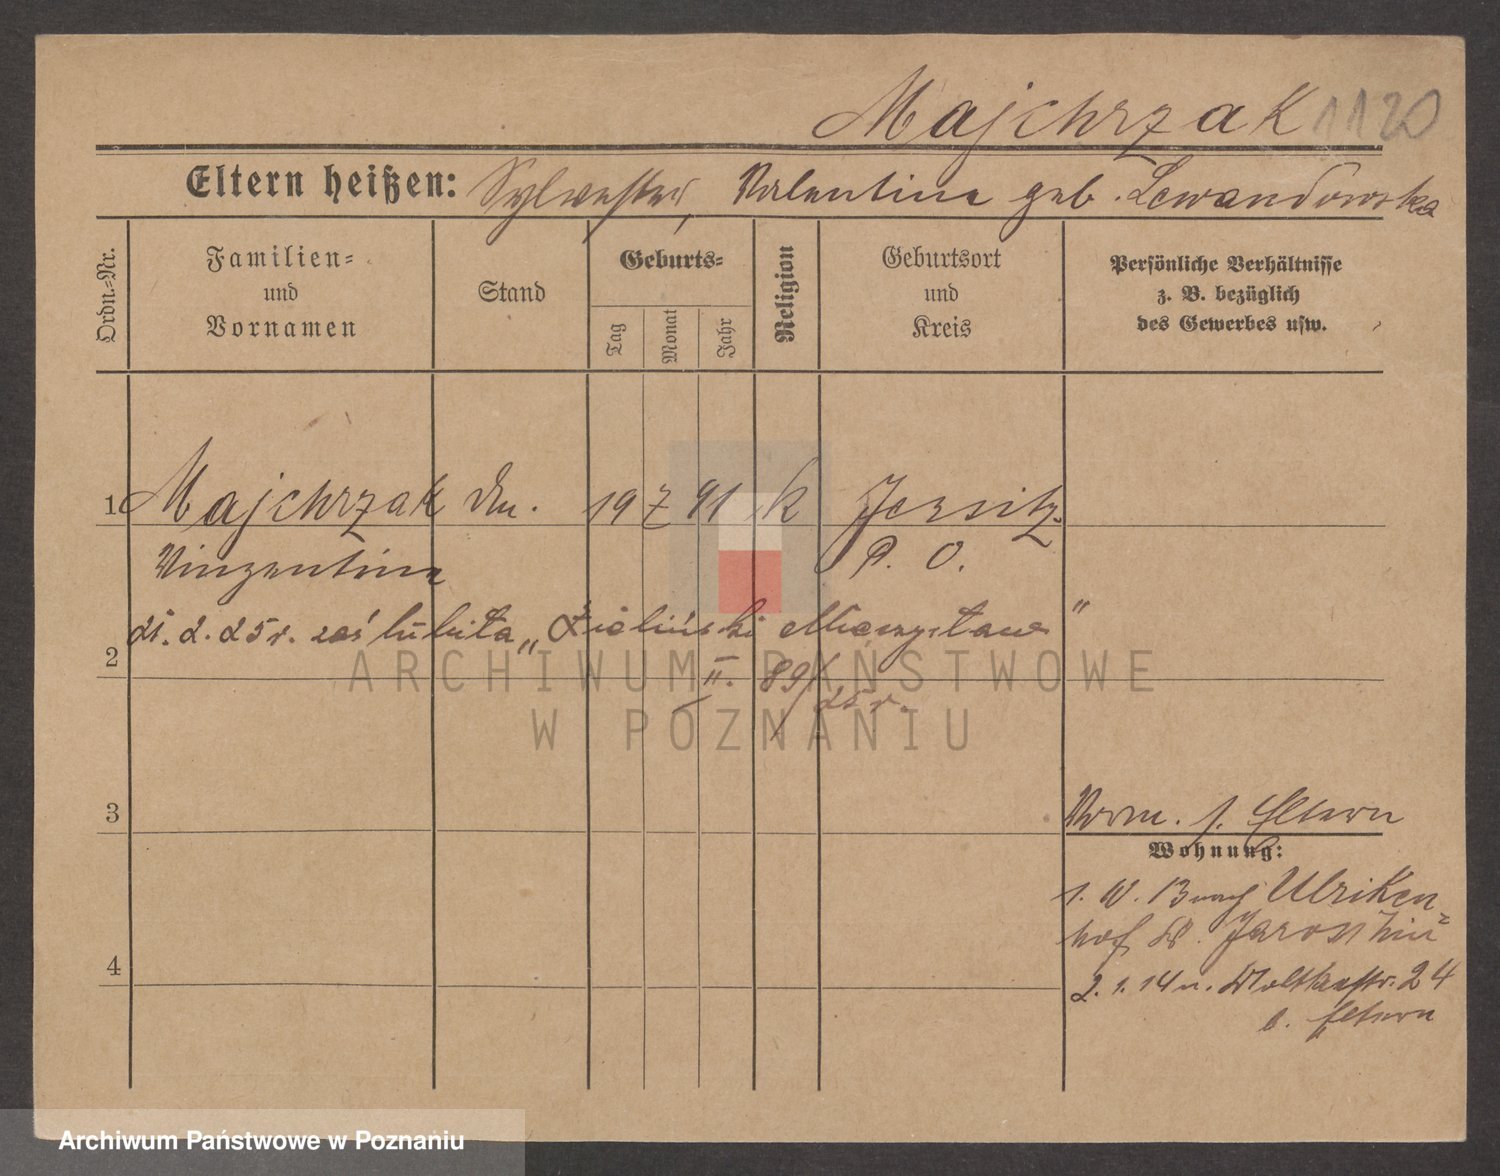 Majchrzak 1120
Eltern heißen: Sylvester, Valentine geb. Lewandowska
Ordn.-Nr.
Familien-
und
Vornamen
Stand
Geburts-
Tag
Monat
Jahr
Religion
Geburtsort
und
Kreis
Persönliche Verhältnisse
z. B. bezüglich
des Gewerbes usw.
1 Majchrzak 19 7 91 k Jersitz
Vinzentine P. O.
25 r. zaślubiła „Zieliński Mieczysław"
2
II. 89/25 r.
3
Vorm. s. Eltern
Wohnung:
Ulriken-
hof Kr. Jarotschin
4
2.1.14 n. Moltkestr. 24
b. Eltern
ARCHIWUM PAŃSTWOWE
W POZNANIU
Archiwum Państwowe w Poznaniu